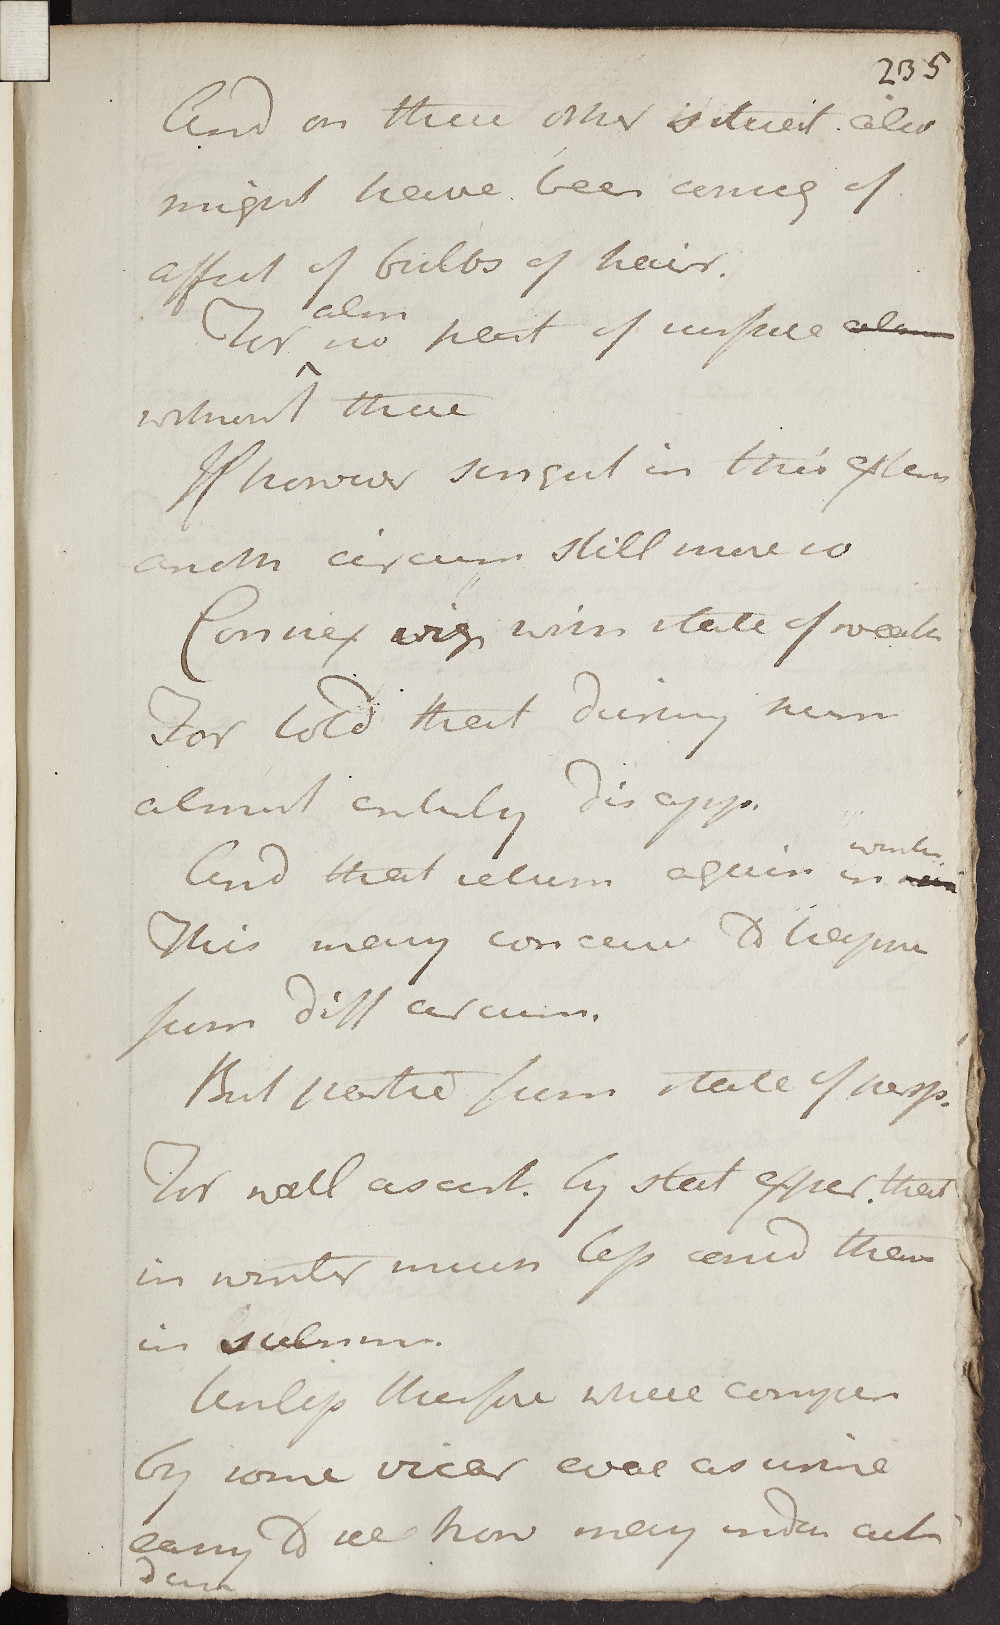 235
And on these other situat. also
might have been arising of
affect of bulbs of hair.
also
For no part of surface
without these
If however singul in this explan
anoth circum still more so
Connex wig with state of weath
For told that during summ
almost entirely disapp.
And that return again in
winter
This many conceive to happen
from diff circum.
But partic from state of persp.
For well ascert. by stat exper. that
in winter much less consid than
in summ.
Unless therefore where compen
by some vicar evac as urine
easy to see how may under cut